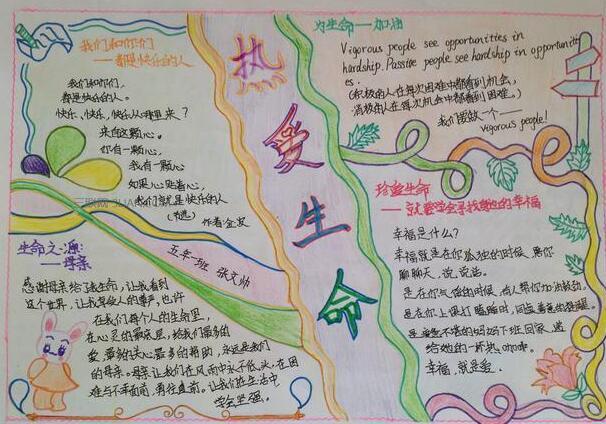 我们和你们
——都是快乐的人
我们和你们，
都是快乐的人。
快乐、快乐，快乐从哪里来？
来自这颗心。
你有一颗心，
我有一颗心
如果心连着心，
我们就是快乐的人
作者：金波
生命之源
——母亲
五年一班 张文帅
感谢母亲给了我生命，让我看到
这个世界，让我
在我们每个人的生命里，
在心灵的最底层，给我们最多的
爱，最多的关心最多的帮助，永远是我们
的母亲。母亲让我们在风雨中永不低头，在困
难与不幸面前，勇往直前。让我们在生活中
学会坚强。
热爱生命
为生命——加油
Vigorous people see opportunities in
hardship. Passive people see hardship in opportunities
es.
(积极的人在每次困难中都看到机会，
消极的人在每次机会中都看到困难。)
我们要做一个——
vigorous people!
珍爱生命
——就要学会寻找身边的幸福
幸福是什么？
幸福就是在你孤独的时候，陪你
聊聊天，说说话。
是在你气馁的时候，有人帮你加油鼓劲，
是在你上课打瞌睡时，同桌善意的提醒。
下班回家，递
给她的一杯热
幸福，就是爱。